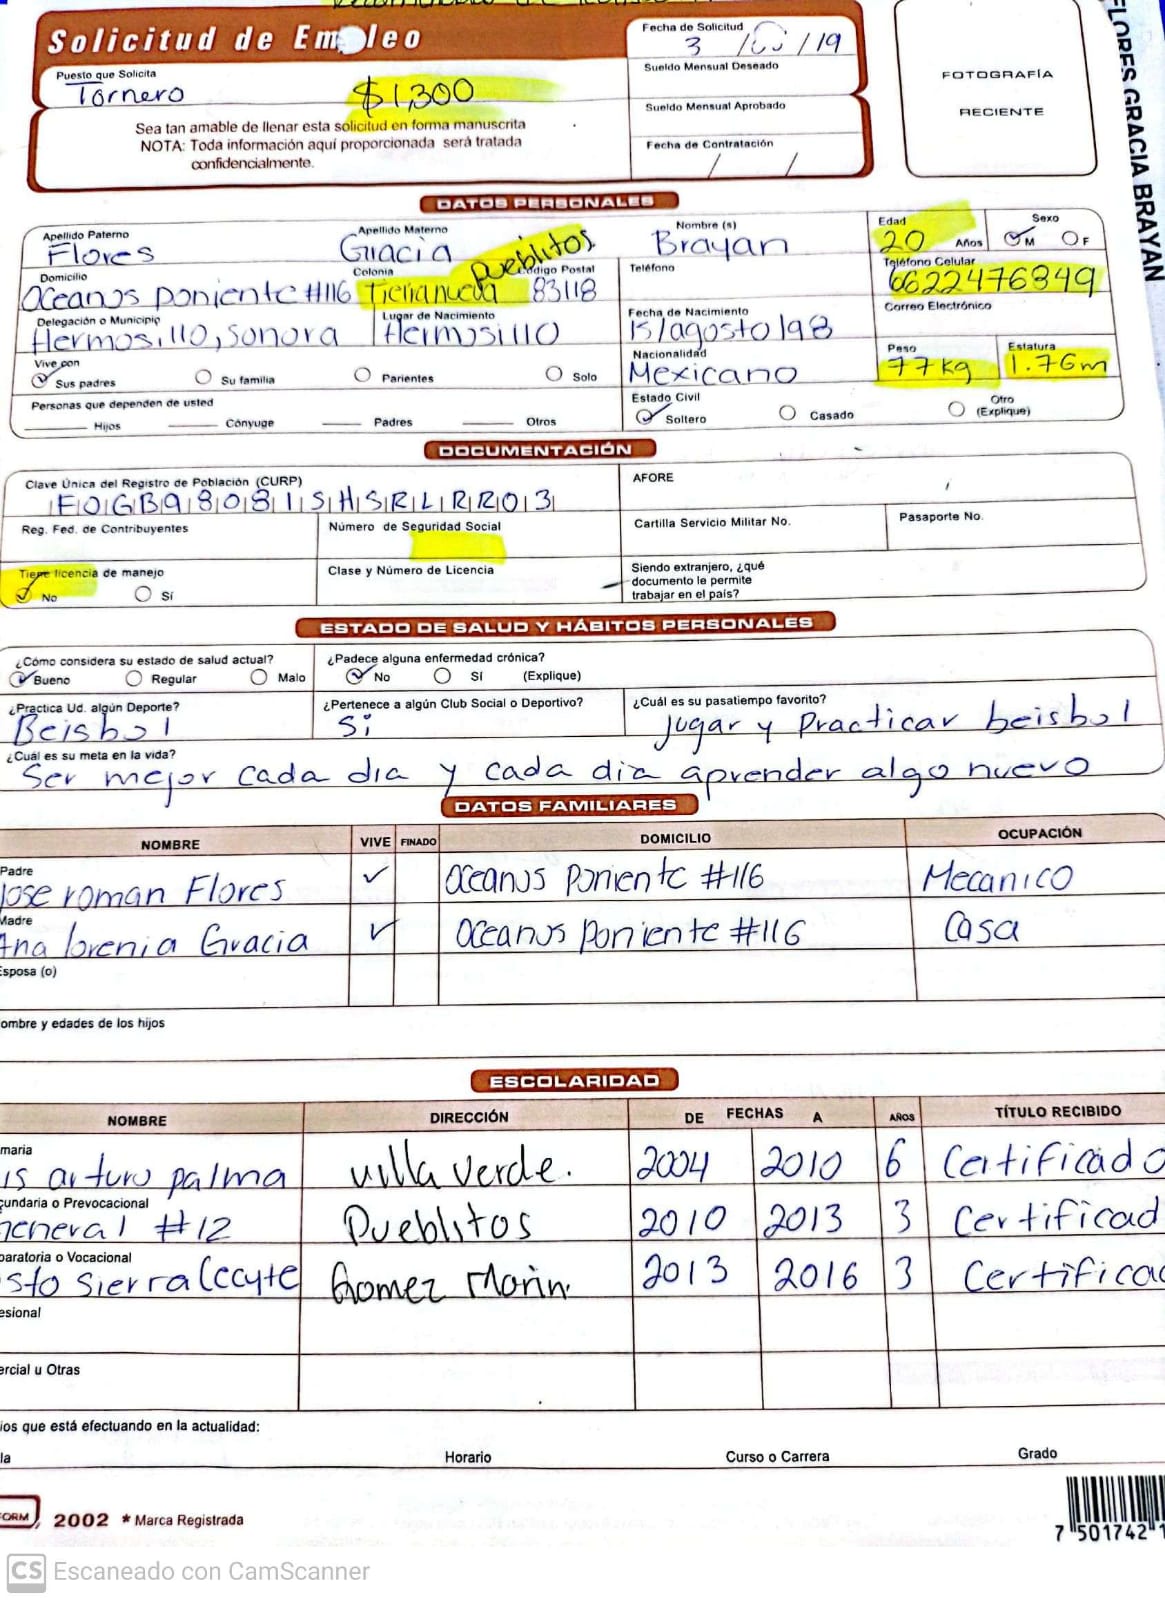 Solicitud de Em leo
Fecha de Solicitud
3 / /19
Puesto que Solicita
Tornero
$1,300
Sueldo Mensual Deseado
Sueldo Mensual Aprobado
Fecha de Contratación
/ /
Sea tan amable de llenar esta solicitud en forma manuscrita
NOTA: Toda información aquí proporcionada será tratada
confidencialmente.
FOTOGRAFÍA
RECIENTE
FLORES GRACIA BRAYAN
DATOS PERSONALES
Apellido Paterno Apellido Materno Nombre (s) Edad Sexo
Flores Gracia Brayan 20 Años M F
Pueblitos
Domicilio Colonia Código Postal Teléfono Teléfono Celular
Oceanus poniente #116 Tierranueva 83118 6622476349
Delegación o Municipio Lugar de Nacimiento Fecha de Nacimiento Correo Electrónico
Hermosillo, sonora Hermosillo 15/agosto/98
Vive con Nacionalidad Peso Estatura
Sus padres Su familia Parientes Solo Mexicano 77kg 1.76m
Personas que dependen de usted Estado Civil Otro
Hijos Cónyuge Padres Otros Soltero Casado (Explique)
DOCUMENTACIÓN
Clave Única del Registro de Población (CURP) AFORE
FOGB980815HSRLRR03
Reg. Fed. de Contribuyentes Número de Seguridad Social Cartilla Servicio Militar No. Pasaporte No.
Tiene licencia de manejo Clase y Número de Licencia Siendo extranjero, ¿qué
documento le permite
No Sí trabajar en el país?
ESTADO DE SALUD Y HÁBITOS PERSONALES
¿Cómo considera su estado de salud actual? ¿Padece alguna enfermedad crónica?
Bueno Regular Malo No Sí (Explique)
¿Practica Ud. algún Deporte? ¿Pertenece a algún Club Social o Deportivo? ¿Cuál es su pasatiempo favorito?
Beisbol Si Jugar y Practicar beisbol
¿Cuál es su meta en la vida?
Ser mejor cada dia y cada dia aprender algo nuevo
DATOS FAMILIARES
NOMBRE VIVE FINADO DOMICILIO OCUPACIÓN
Padre
Jose roman Flores Oceanus Poniente #116 Mecanico
Madre
Ana lorenia Gracia Oceanus Poniente #116 Casa
Esposa (o)
ombre y edades de los hijos
ESCOLARIDAD
NOMBRE DIRECCIÓN DE FECHAS A AÑOS TÍTULO RECIBIDO
maria
is arturo palma Villa verde. 2004 2010 6 Certificado
cundaria o Prevocacional
General #12 Pueblitos 2010 2013 3 Certificad
paratoria o Vocacional
sto Sierra Cecyte Gomez Morin. 2013 2016 3 Certificad
esional
ercial u Otras
ios que está efectuando en la actualidad:
la Horario Curso o Carrera Grado
FORM 2002 * Marca Registrada
7 501742 1
CS Escaneado con CamScanner